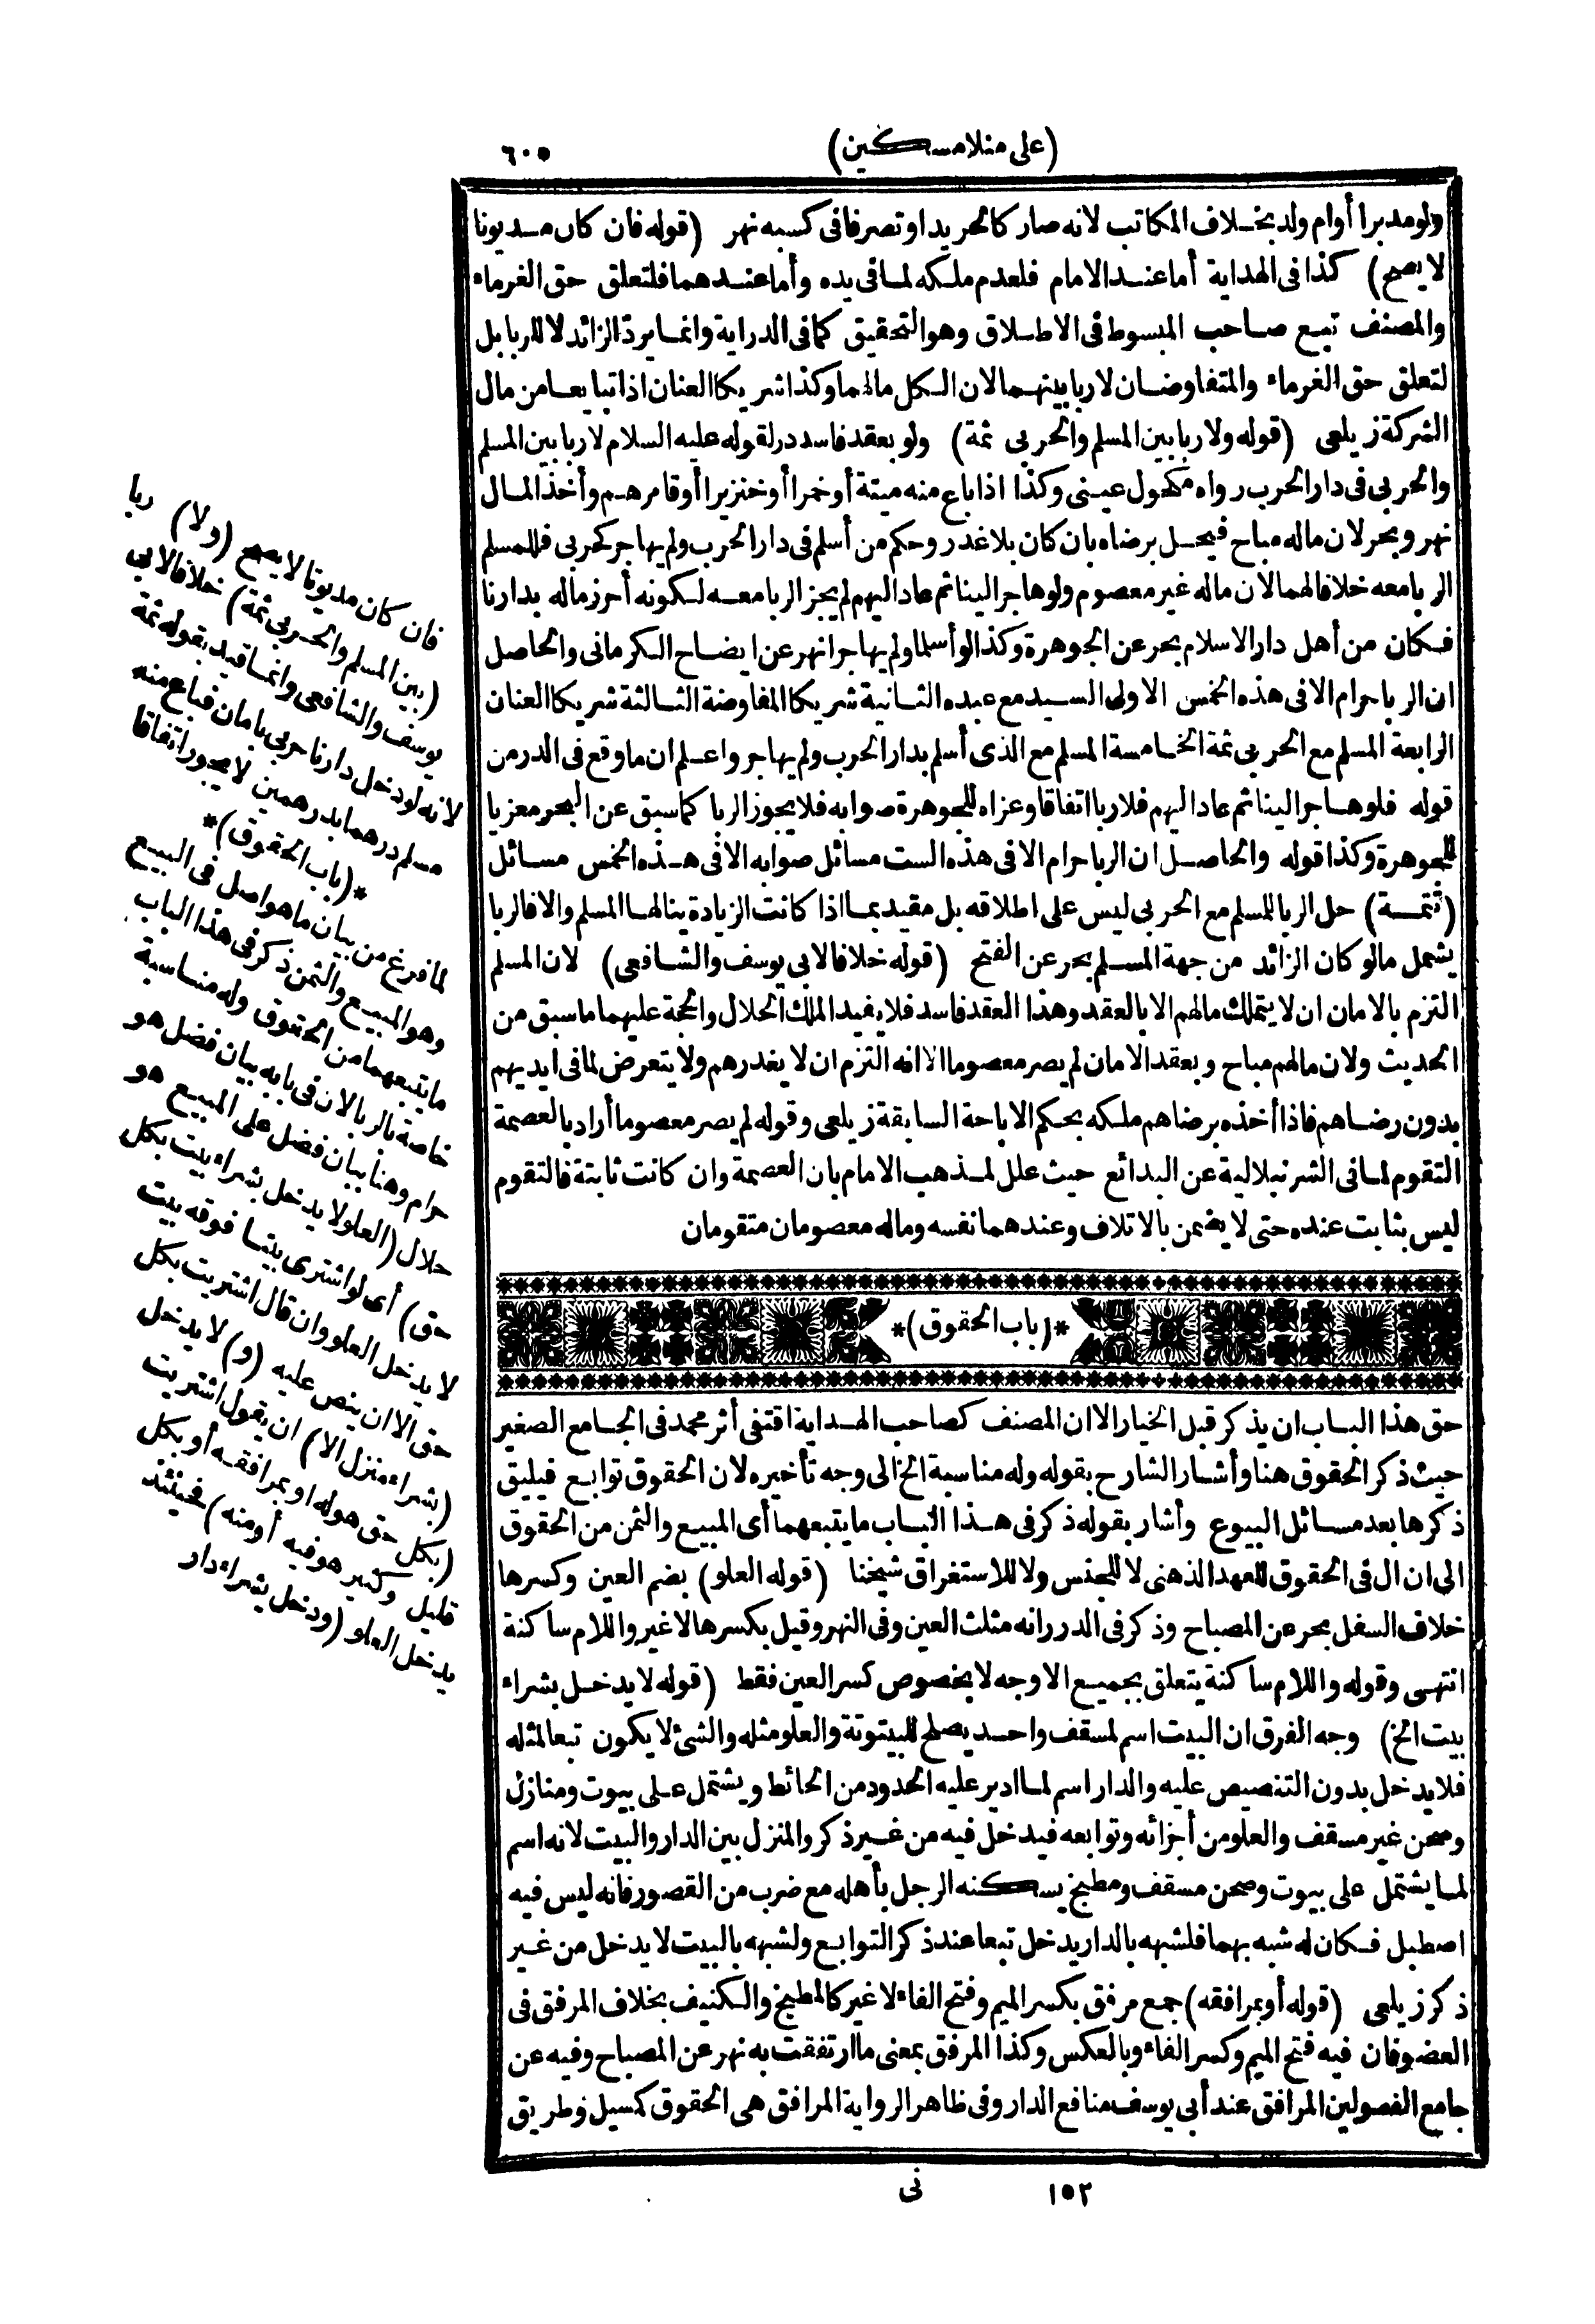 (على منلامسكين)
٦٠٥
ولو مدبرا أو ام ولد بخلاف المكاتب لانه صار كالحر يدا وتصرفا فى كسبه نهر (قوله فان كان مديونا
لا يصح) كذا فى الهداية أما عند الامام فلعدم ملكه لما فى يده وأما عندهما فلتعلق حق الغرماء
والمصنف تبع صاحب المبسوط فى الاطلاق وهو التحقيق كما فى الدراية وانما يرد الزائد لا للربا بل
لتعلق حق الغرماء والمتفاوضان لا ربا بينهما لان الكل مالهما وكذا شريكا العنان اذا تبايعا من مال
الشركة زيلعى (قوله ولا ربا بين المسلم والحربى ثمة) ولو بعقد فاسد در لقوله عليه السلام لا ربا بين المسلم
والحربى فى دار الحرب رواه مكحول عينى وكذا اذا باع منه ميتة أو خمرا أو خنزيرا أو قامرهم وأخذ المال
نهر وبحر لان ماله مباح فيحل برضاه بان كان بلا غدر وحكم من أسلم فى دار الحرب ولم يهاجر كحربى فللمسلم
الربا معه خلافا لهما لان ماله غير معصوم ولو هاجر الينا ثم عاد اليهم لم يجز الربا معه لكونه أحرز ماله بدارنا
فكان من أهل دار الاسلام بحر عن الجوهرة وكذا لو أسلما ولم يهاجرا نهر عن ايضاح الكرمانى والحاصل
ان الربا حرام الا فى هذه الخمس الاولى السيد مع عبده الثانية شريكا المفاوضة الثالثة شريكا العنان
الرابعة المسلم مع الحربى ثمة الخامسة المسلم مع الذى أسلم بدار الحرب ولم يهاجر واعلم ان ما وقع فى الدر من
قوله فلو هاجر الينا ثم عاد اليهم فلا ربا اتفاقا وعزاه للجوهرة صوابه فلا يجوز الربا كما سبق عن البحر معزيا
للجوهرة وكذا قوله والحاصل ان الربا حرام الا فى هذه الست مسائل صوابه الا فى هذه الخمس مسائل
(تتمة) حل الربا للمسلم مع الحربى ليس على اطلاقه بل مقيد بما اذا كانت الزيادة ينالها المسلم والا فالربا
يشمل ما لو كان الزائد من جهة المسلم بحر عن الفتح (قوله خلافا لابى يوسف والشافعى) لان المسلم
التزم بالامان ان لا يتملك مالهم الا بالعقد وهذا العقد فاسد فلا يفيد الملك الحلال والحجة عليهما ما سبق من
الحديث ولان مالهم مباح وبعقد الامان لم يصر معصوما الا انه التزم ان لا يغدرهم ولا يتعرض لما فى ايديهم
بدون رضاهم فاذا أخذه برضاهم ملكه بحكم الاباحة السابقة زيلعى وقوله لم يصر معصوما أراد بالعصمة
التقوم لما فى الشرنبلالية عن البدائع حيث علل لمذهب الامام بان العصمة وان كانت ثابتة فالتقوم
ليس بثابت عنده حتى لا يضمن بالاتلاف وعندهما نفسه وماله معصومان متقومان
*(باب الحقوق)*
حق هذا الباب ان يذكر قبل الخيار الا ان المصنف كصاحب الهداية اقتفى أثر محمد فى الجامع الصغير
حيث ذكر الحقوق هنا وأشار الشارح بقوله وله مناسبة الخ الى وجه تأخيره لان الحقوق توابع فيليق
ذكرها بعد مسائل البيوع وأشار بقوله ذكر فى هذا الباب ما يتبعهما أى المبيع والثمن من الحقوق
الى ان ال فى الحقوق للعهد الذهنى لا للجنس ولا للاستغراق شيخنا (قوله العلو) بضم العين وكسرها
خلاف السفل بحر عن المصباح وذكر فى الدرر انه مثلث العين وفى النهر وقيل بكسرها لا غير واللام ساكنة
انتهى وقوله واللام ساكنة يتعلق بجميع الاوجه لا بخصوص كسر العين فقط (قوله لا يدخل بشراء
بيت الخ) وجه الفرق ان البيت اسم لمسقف واحد يصلح للبيتوتة والعلو مثله والشئ لا يكون تبعا لمثله
فلا يدخل بدون التنصيص عليه والدار اسم لما ادير عليه الحدود من الحائط ويشتمل على بيوت ومنازل
وصحن غير مسقف والعلو من أجزائه وتوابعه فيدخل فيه من غير ذكر والمنزل بين الدار والبيت لانه اسم
لما يشتمل على بيوت وصحن مسقف ومطبخ يسكنه الرجل بأهله مع ضرب من القصور فانه ليس فيه
اصطبل فكان له شبه بهما فلشبهه بالدار يدخل تبعا عند ذكر التوابع ولشبهه بالبيت لا يدخل من غير
ذكر زيلعى (قوله أو بمرافقه) جمع مرفق بكسر الميم وفتح الفاء لا غير كالمطبخ والكنيف بخلاف المرفق فى
العضو فان فيه فتح الميم وكسر الفاء وبالعكس وكذا المرفق بمعنى ما ارتفقت به نهر عن المصباح وفيه عن
جامع الفصولين المرافق عند أبى يوسف منافع الدار وفى ظاهر الرواية المرافق هى الحقوق كمسيل وطريق
فان كان مديونا لا يصح (ولا) ربا
(بين المسلم والحربى ثمة) خلافا لابى
يوسف والشافعى وانما قيد بقوله ثمة
لانه لو دخل دارنا حربى بامان فباع منه
مسلم درهما بدرهمين لا يجوز اتفاقا
*(باب الحقوق)*
لما فرغ من بيان ما هو اصل فى البيع
وهو المبيع والثمن ذكر فى هذا الباب
ما يتبعهما من الحقوق وله مناسبة
خاصة بالربا لان فى بابه بيان فضل هو
حرام وهنا بيان فضل على المبيع هو
حلال (العلو لا يدخل بشراء بيت بكل
حق) أى لو اشترى بيتا فوقه بيت
لا يدخل العلو وان قال اشتريت بكل
حق الا ان ينص عليه (و) لا يدخل
(بشراء منزل الا) ان يقول اشتريت
(بكل حق هو له او بمرافقه أو بكل
قليل وكثير هو فيه أو منه) فحينئذ
يدخل العلو (ودخل بشراء دار
١٥٢
نى